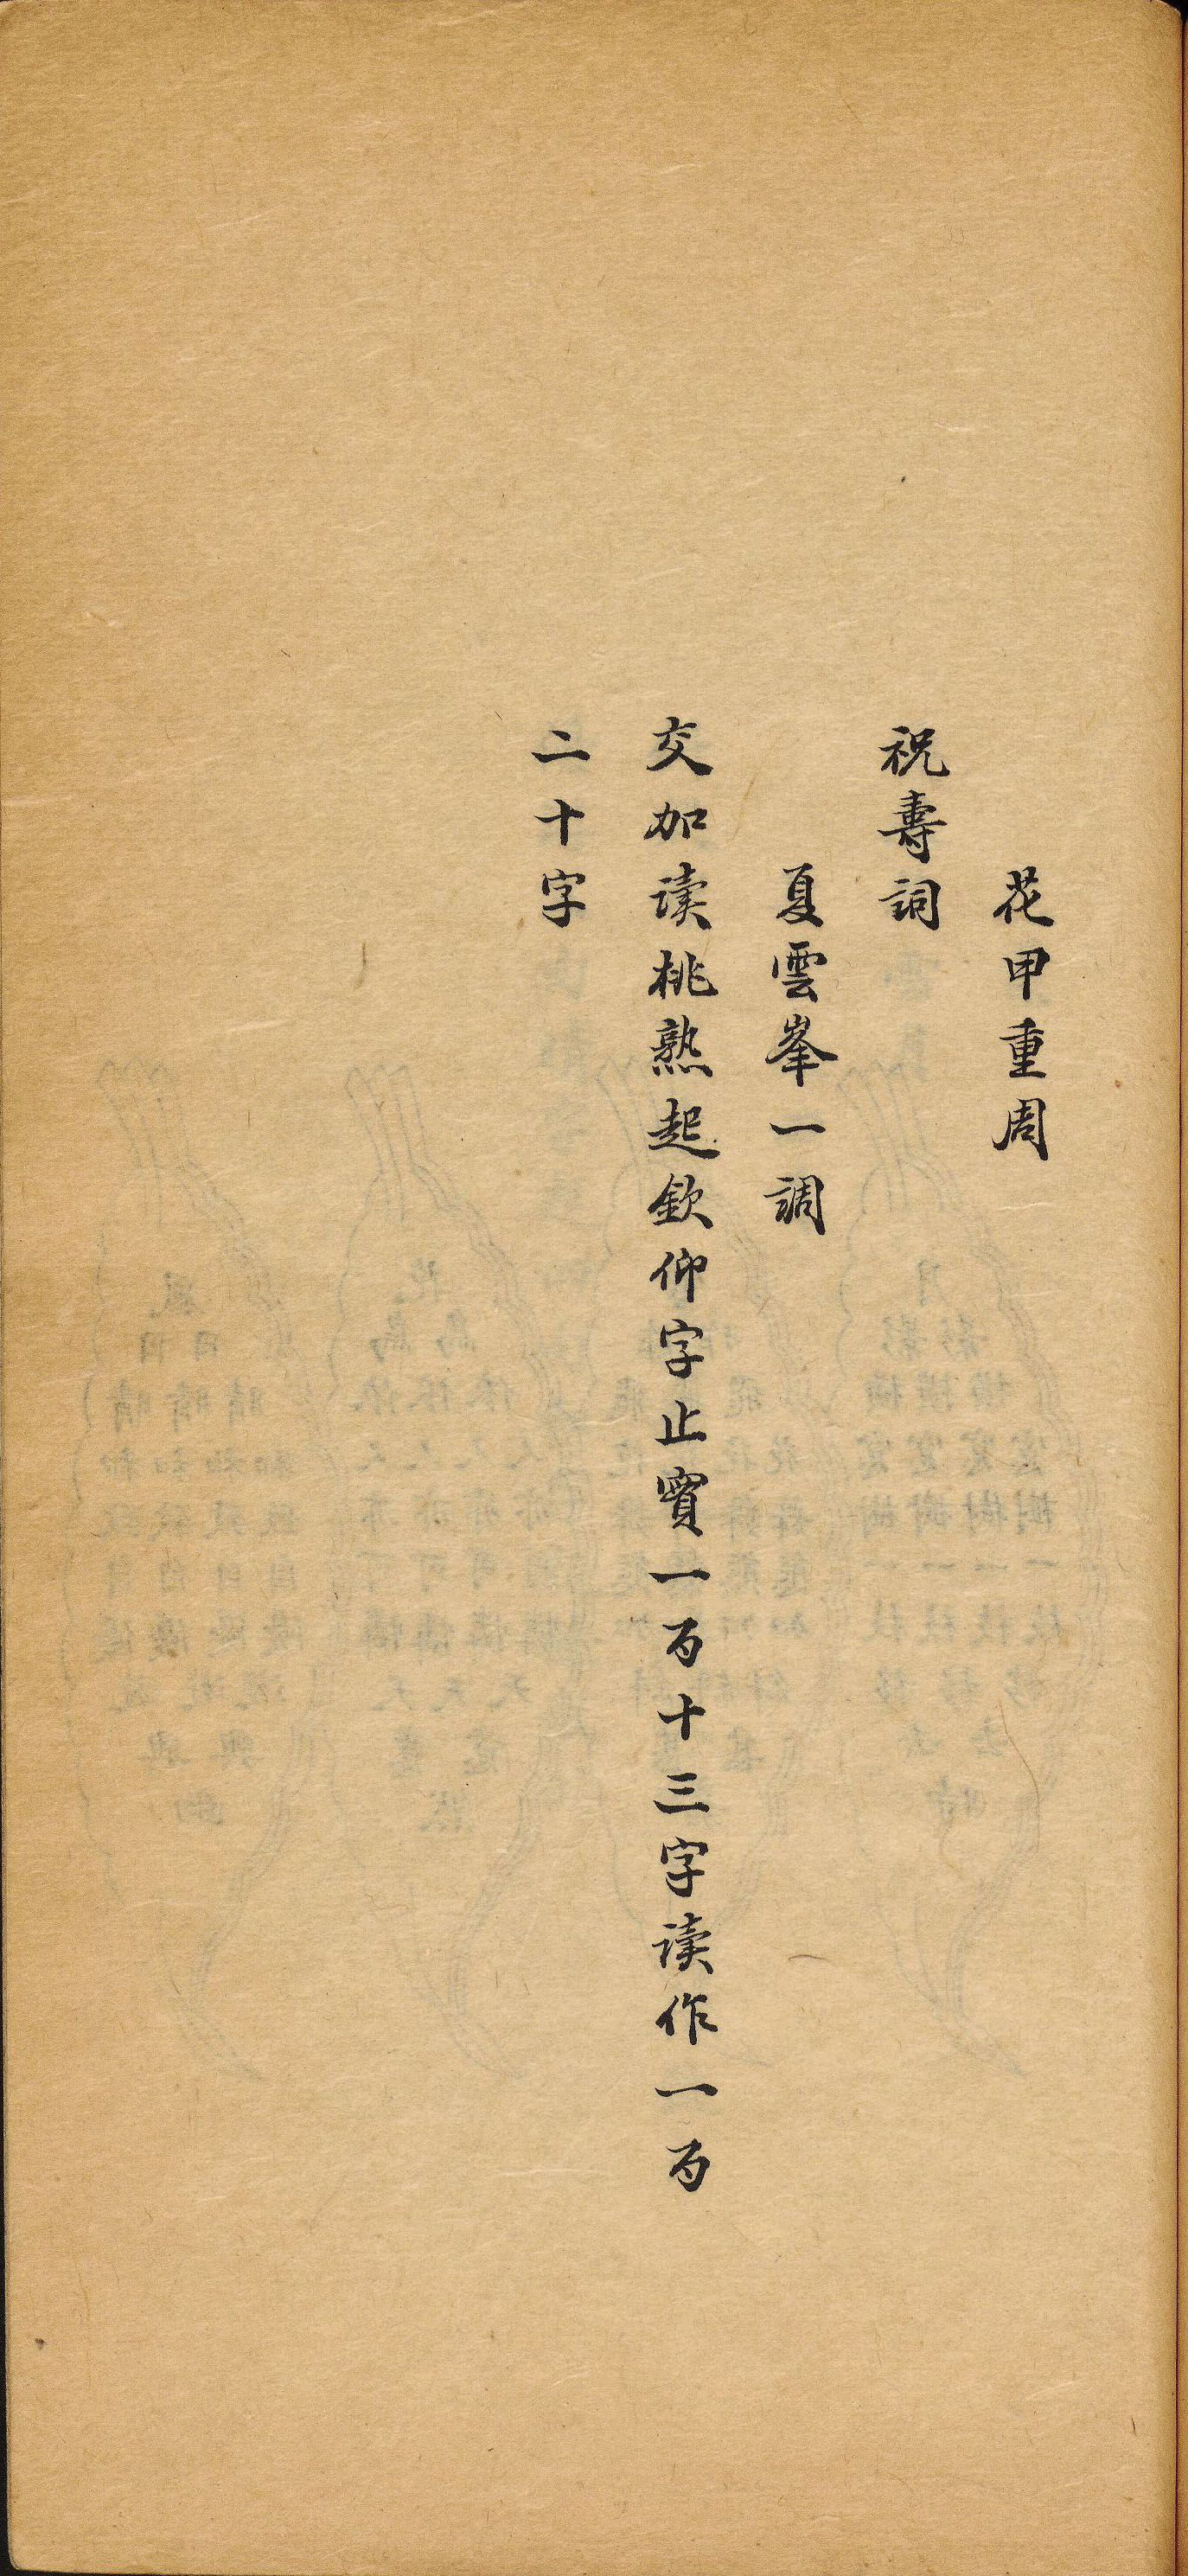 花甲重周
祝壽詞
夏雲峯一調
交加读桃熟起欽仰字止實一百十三字读作一百
二十字